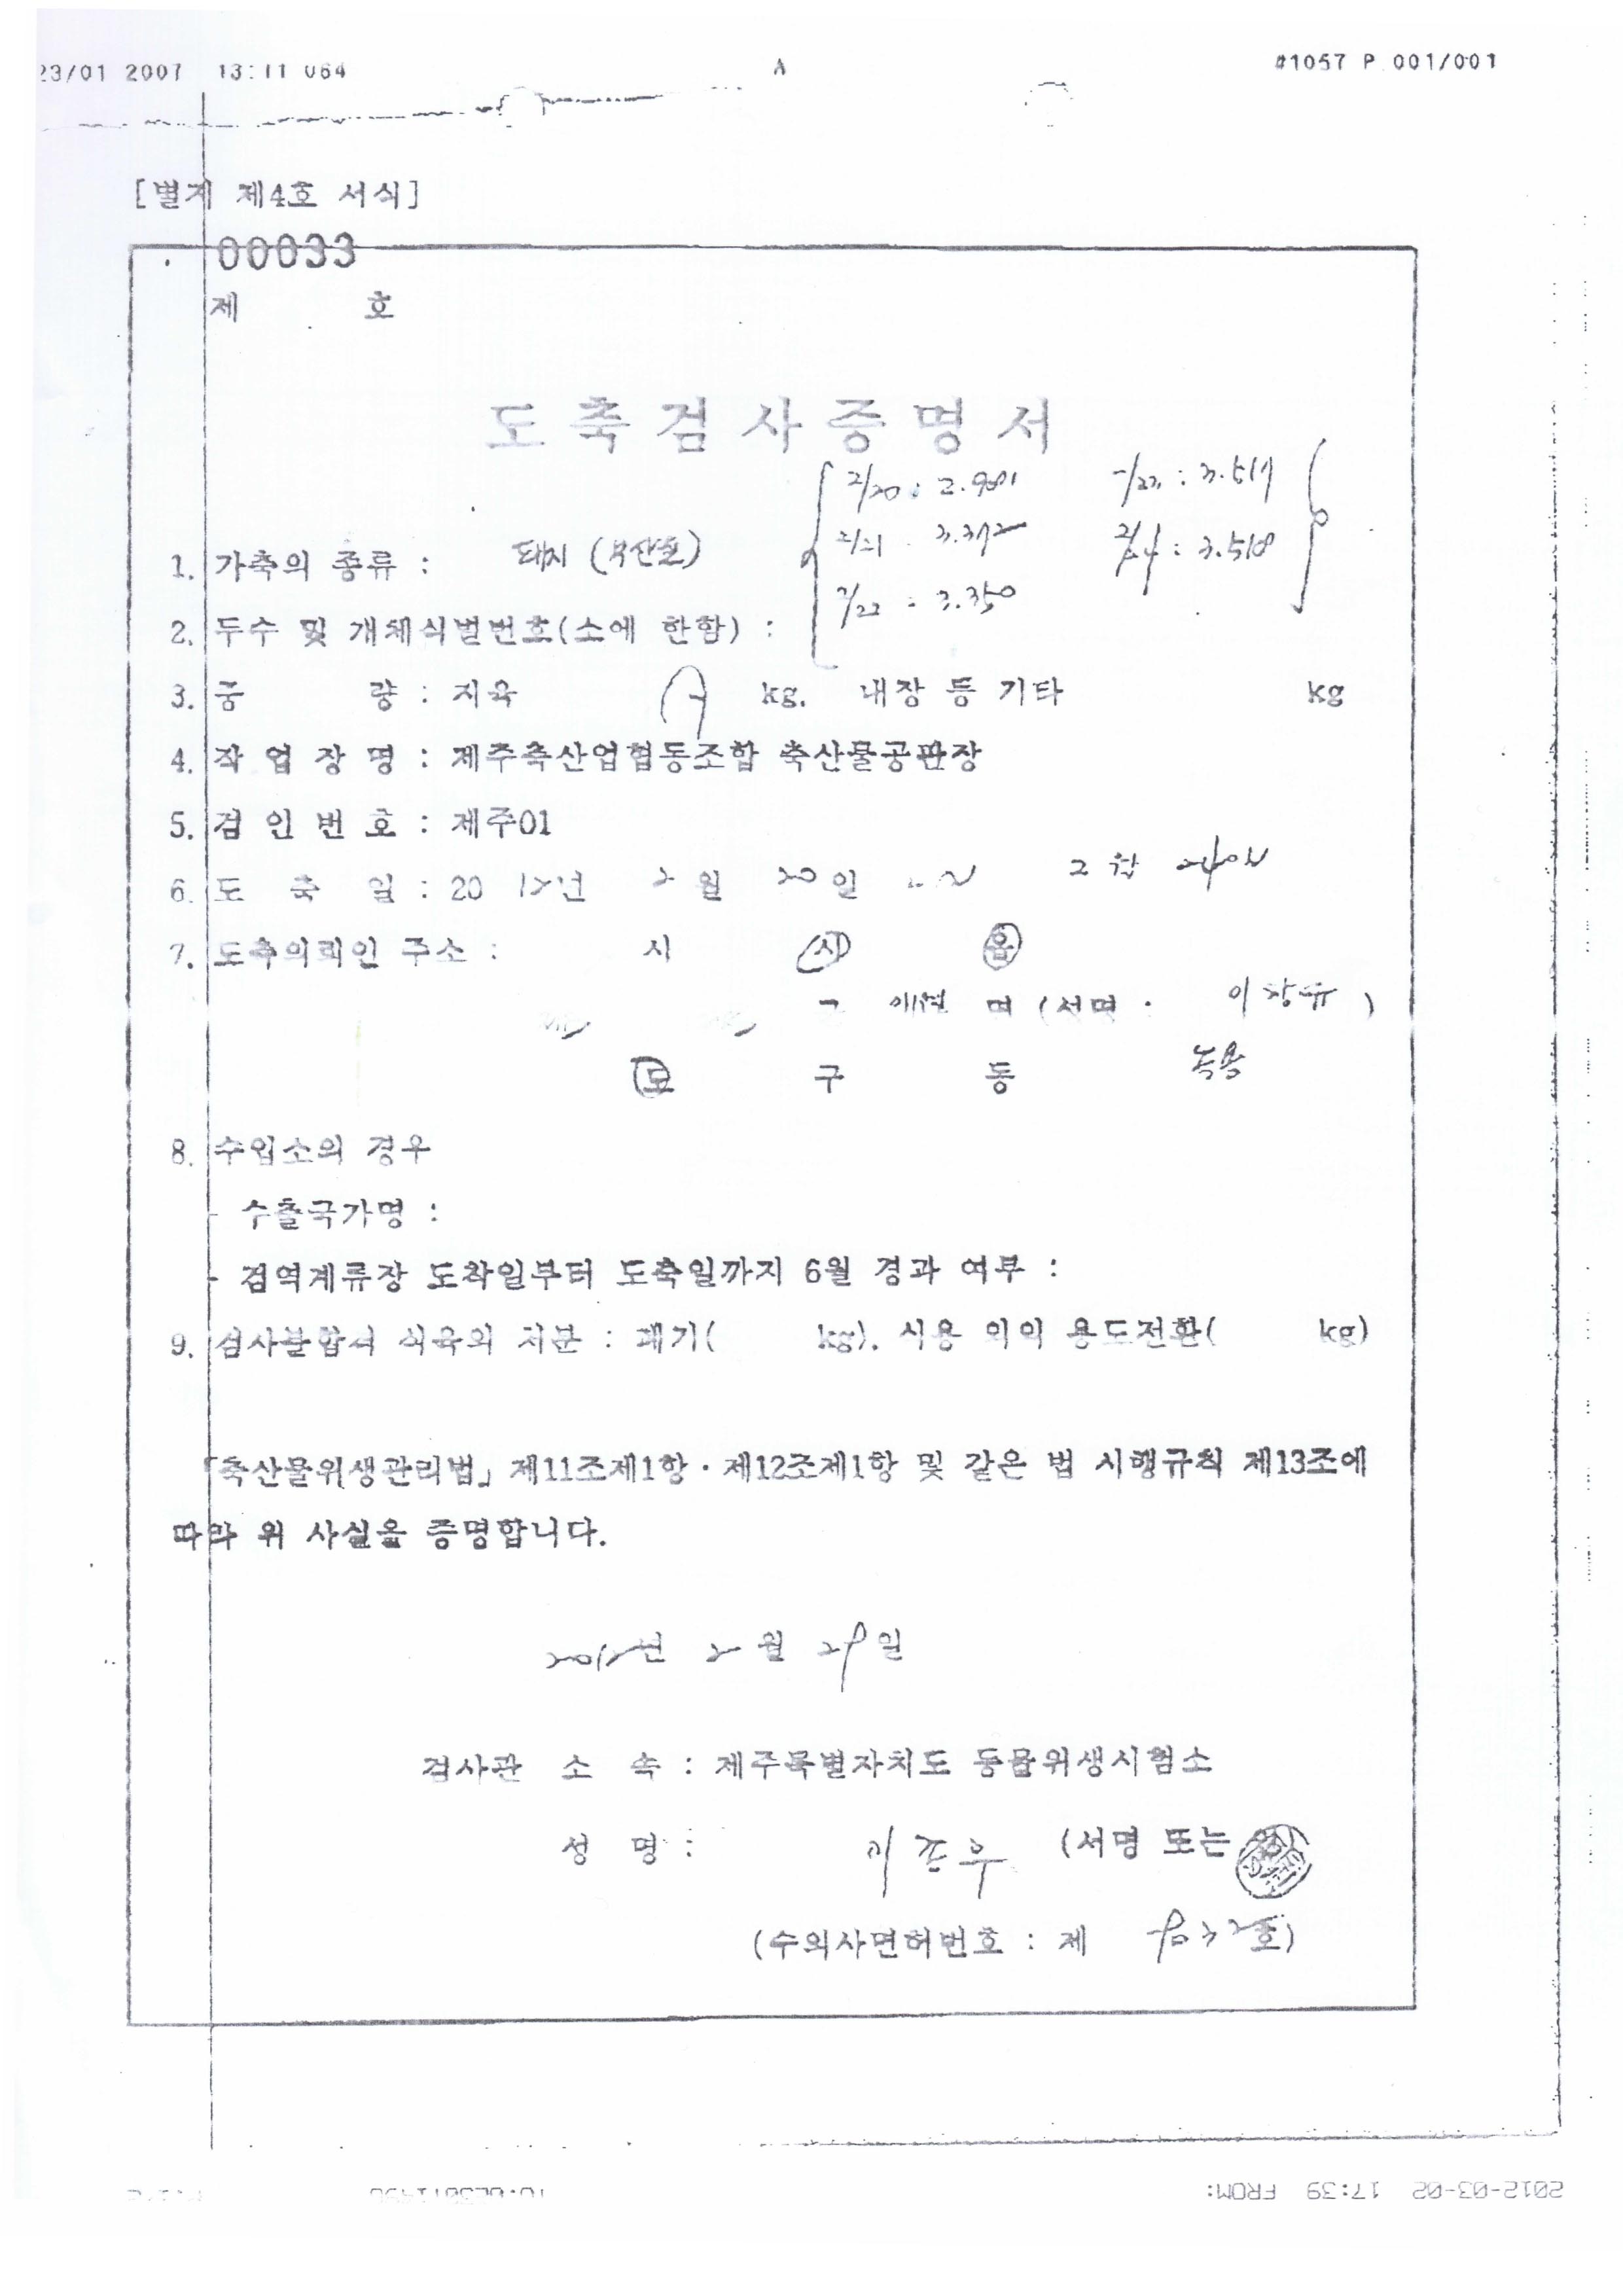 23/01 2007 13:11 064 A #1057 P 001/001
[별지 제4호 서식]
00033
제 호
도축검사증명서
2/20 : 2.981 2/23 : 3.517
2/21 : 3.372 2/24 : 3.518
2/22 : 3.350
1. 가축의 종류 : 돼지 (부산물)
2. 두수 및 개체식별번호(소에 한함) :
3. 중 량 : 지육 kg. 내장 등 기타 kg
4. 작 업 장 명 : 제주축산업협동조합 축산물공판장
5. 검 인 번 호 : 제주01
6. 도 축 일 : 2012년 2월 20일 ~ 2월 24일
7. 도축의뢰인 주소 : 시 시 읍
군 애월 면 (서명 : )
도 구 동
8. 수입소의 경우
- 수출국가명 :
- 검역계류장 도착일부터 도축일까지 6월 경과 여부 :
9. 검사불합격 식육의 처분 : 폐기( kg). 식용 외의 용도전환( kg)
「축산물위생관리법」 제11조제1항·제12조제1항 및 같은 법 시행규칙 제13조에
따라 위 사실을 증명합니다.
2012년 2월 29일
검사관 소 속 : 제주특별자치도 동물위생시험소
성 명 : (서명 또는
(수의사면허번호 : 제 호)
2012-03-02 17:39 FROM: